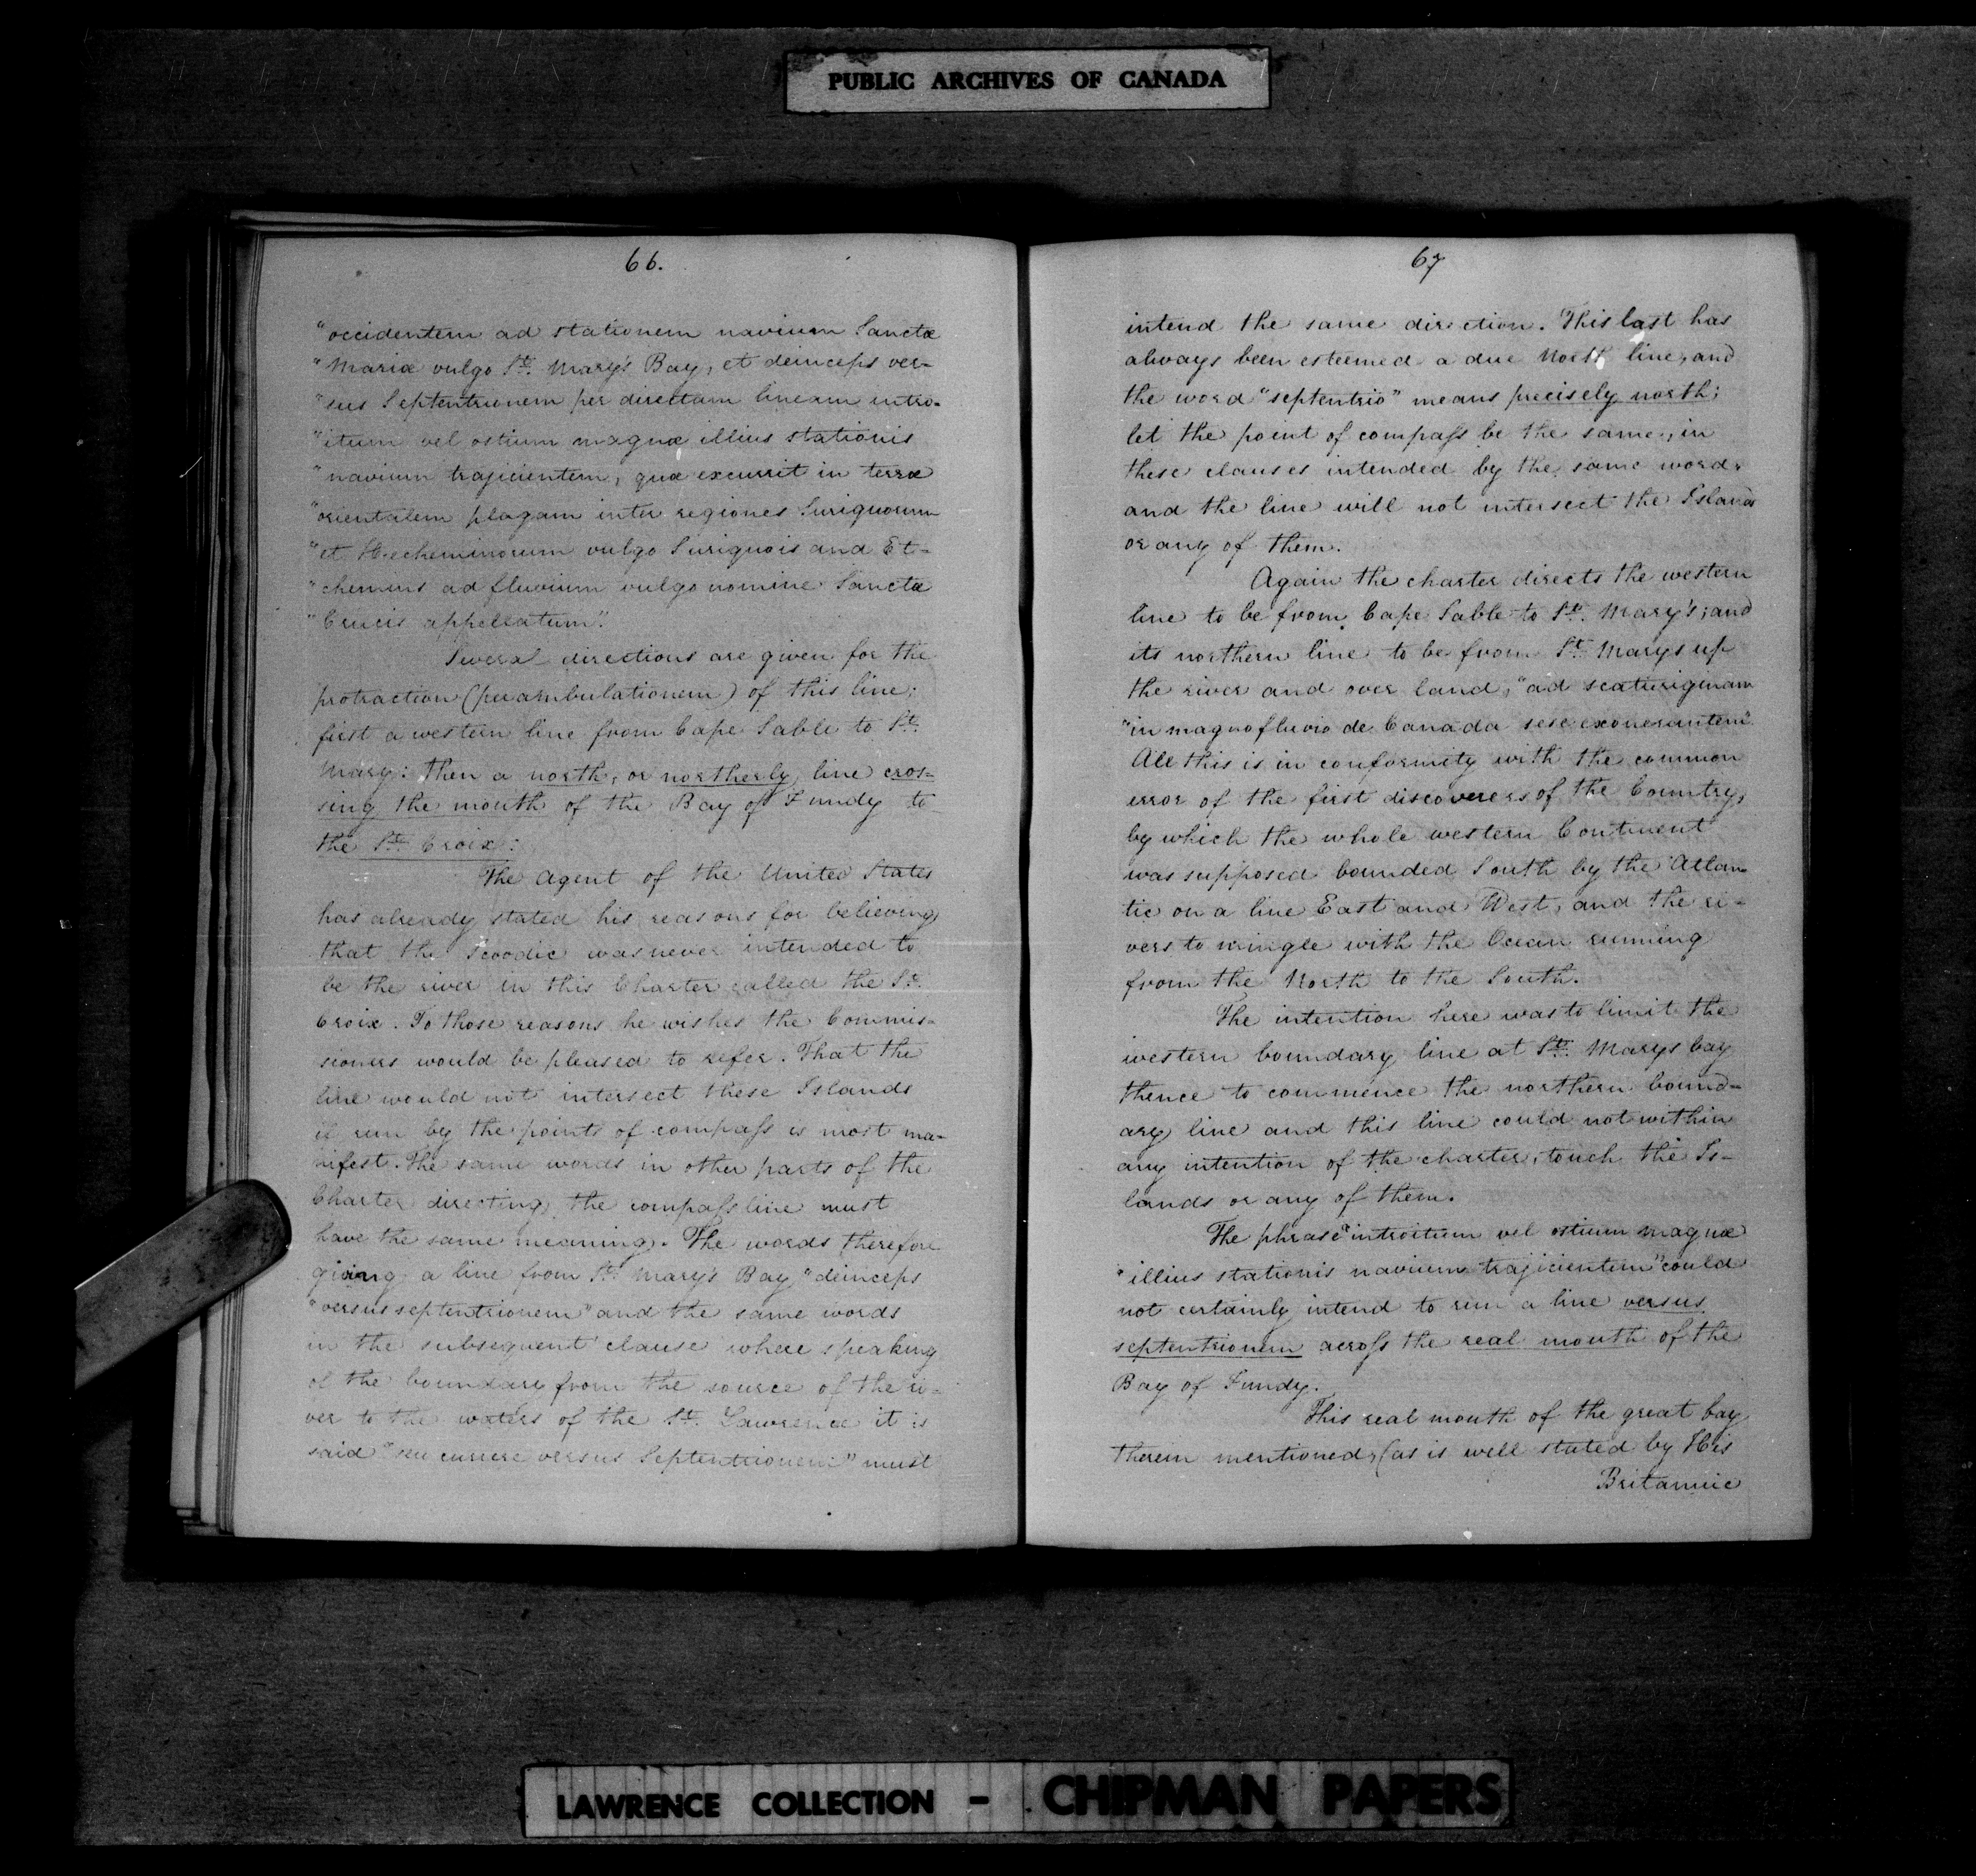 PUBLIC ARCHIVES OF CANADA
66.
"occidentem ad stationem navium Sanctæ
"Mariæ vulgo St. Mary's Bay, et deinceps ver-
"sus Septentrionem per directam lineam intro-
"itum vel ostium magnæ illius stationis
"navium trajicientem, quæ excurrit in terræ
"orientalem plagam inter regiones Suriquorum
"et Hecheminorum vulgo Suriquois and Et-
"chemins ad fluvium vulgo nomine Sanctæ
"Crucis appellatum".
Several directions are given for the
protraction (perambulationem) of this line;
first a western line from Cape Sable to St.
Mary: then a north, or northerly line cros-
sing the mouth of the Bay of Fundy to
the St. Croix:
The Agent of the United States
has already stated his reasons for believing
that the Scoodic was never intended to
be the river in this Charter called the St.
Croix. To those reasons he wishes the Commis-
sioners would be pleased to refer. That the
line would not intersect these Islands
if run by the points of compaſs is most ma-
nifest. The same words in other parts of the
Charter directing the compaſs line must
have the same meaning. The words therefore
giving a line from St. Mary's Bay "deinceps
"versus septentrionem" and the same words
in the subsequent clause where speaking
of the boundary from the source of the ri-
ver to the waters of the St. Lawrence it is
said "seu currere versus Septentrionem" must
67
intend the same direction. This last has
always been esteemed a due North line, and
the word "septentrio" means precisely north;
let the point of compaſs be the same, in
these clauses intended by the same word,
and the line will not intersect the Islands
or any of them.
Again the charter directs the western
line to be from Cape Sable to St. Mary's; and
its northern line to be from St. Marys up
the river and over land, "ad scaturiginam
"in magno fluvio de Canada sese exonerantem".
All this is in conformity with the common
error of the first discoverers of the Country,
by which the whole western Continent
was supposed bounded South by the Atlan
tic on a line East and West, and the ri-
vers to mingle with the Ocean running
from the North to the South.
The intention here was to limit the
western boundary line at St. Marys bay
thence to commence the northern bound-
ary line and this line could not within
any intention of the charter, touch the Is-
lands or any of them.
The phrase "introitum vel ostium magnæ
"illius stationis navium trajicientem" could
not certainly intend to run a line versus
septentrionem acroſs the real mouth of the
Bay of Fundy.
This real mouth of the great bay
therein mentioned, (as is well stated by His
Britannic
LAWRENCE COLLECTION - CHIPMAN PAPERS